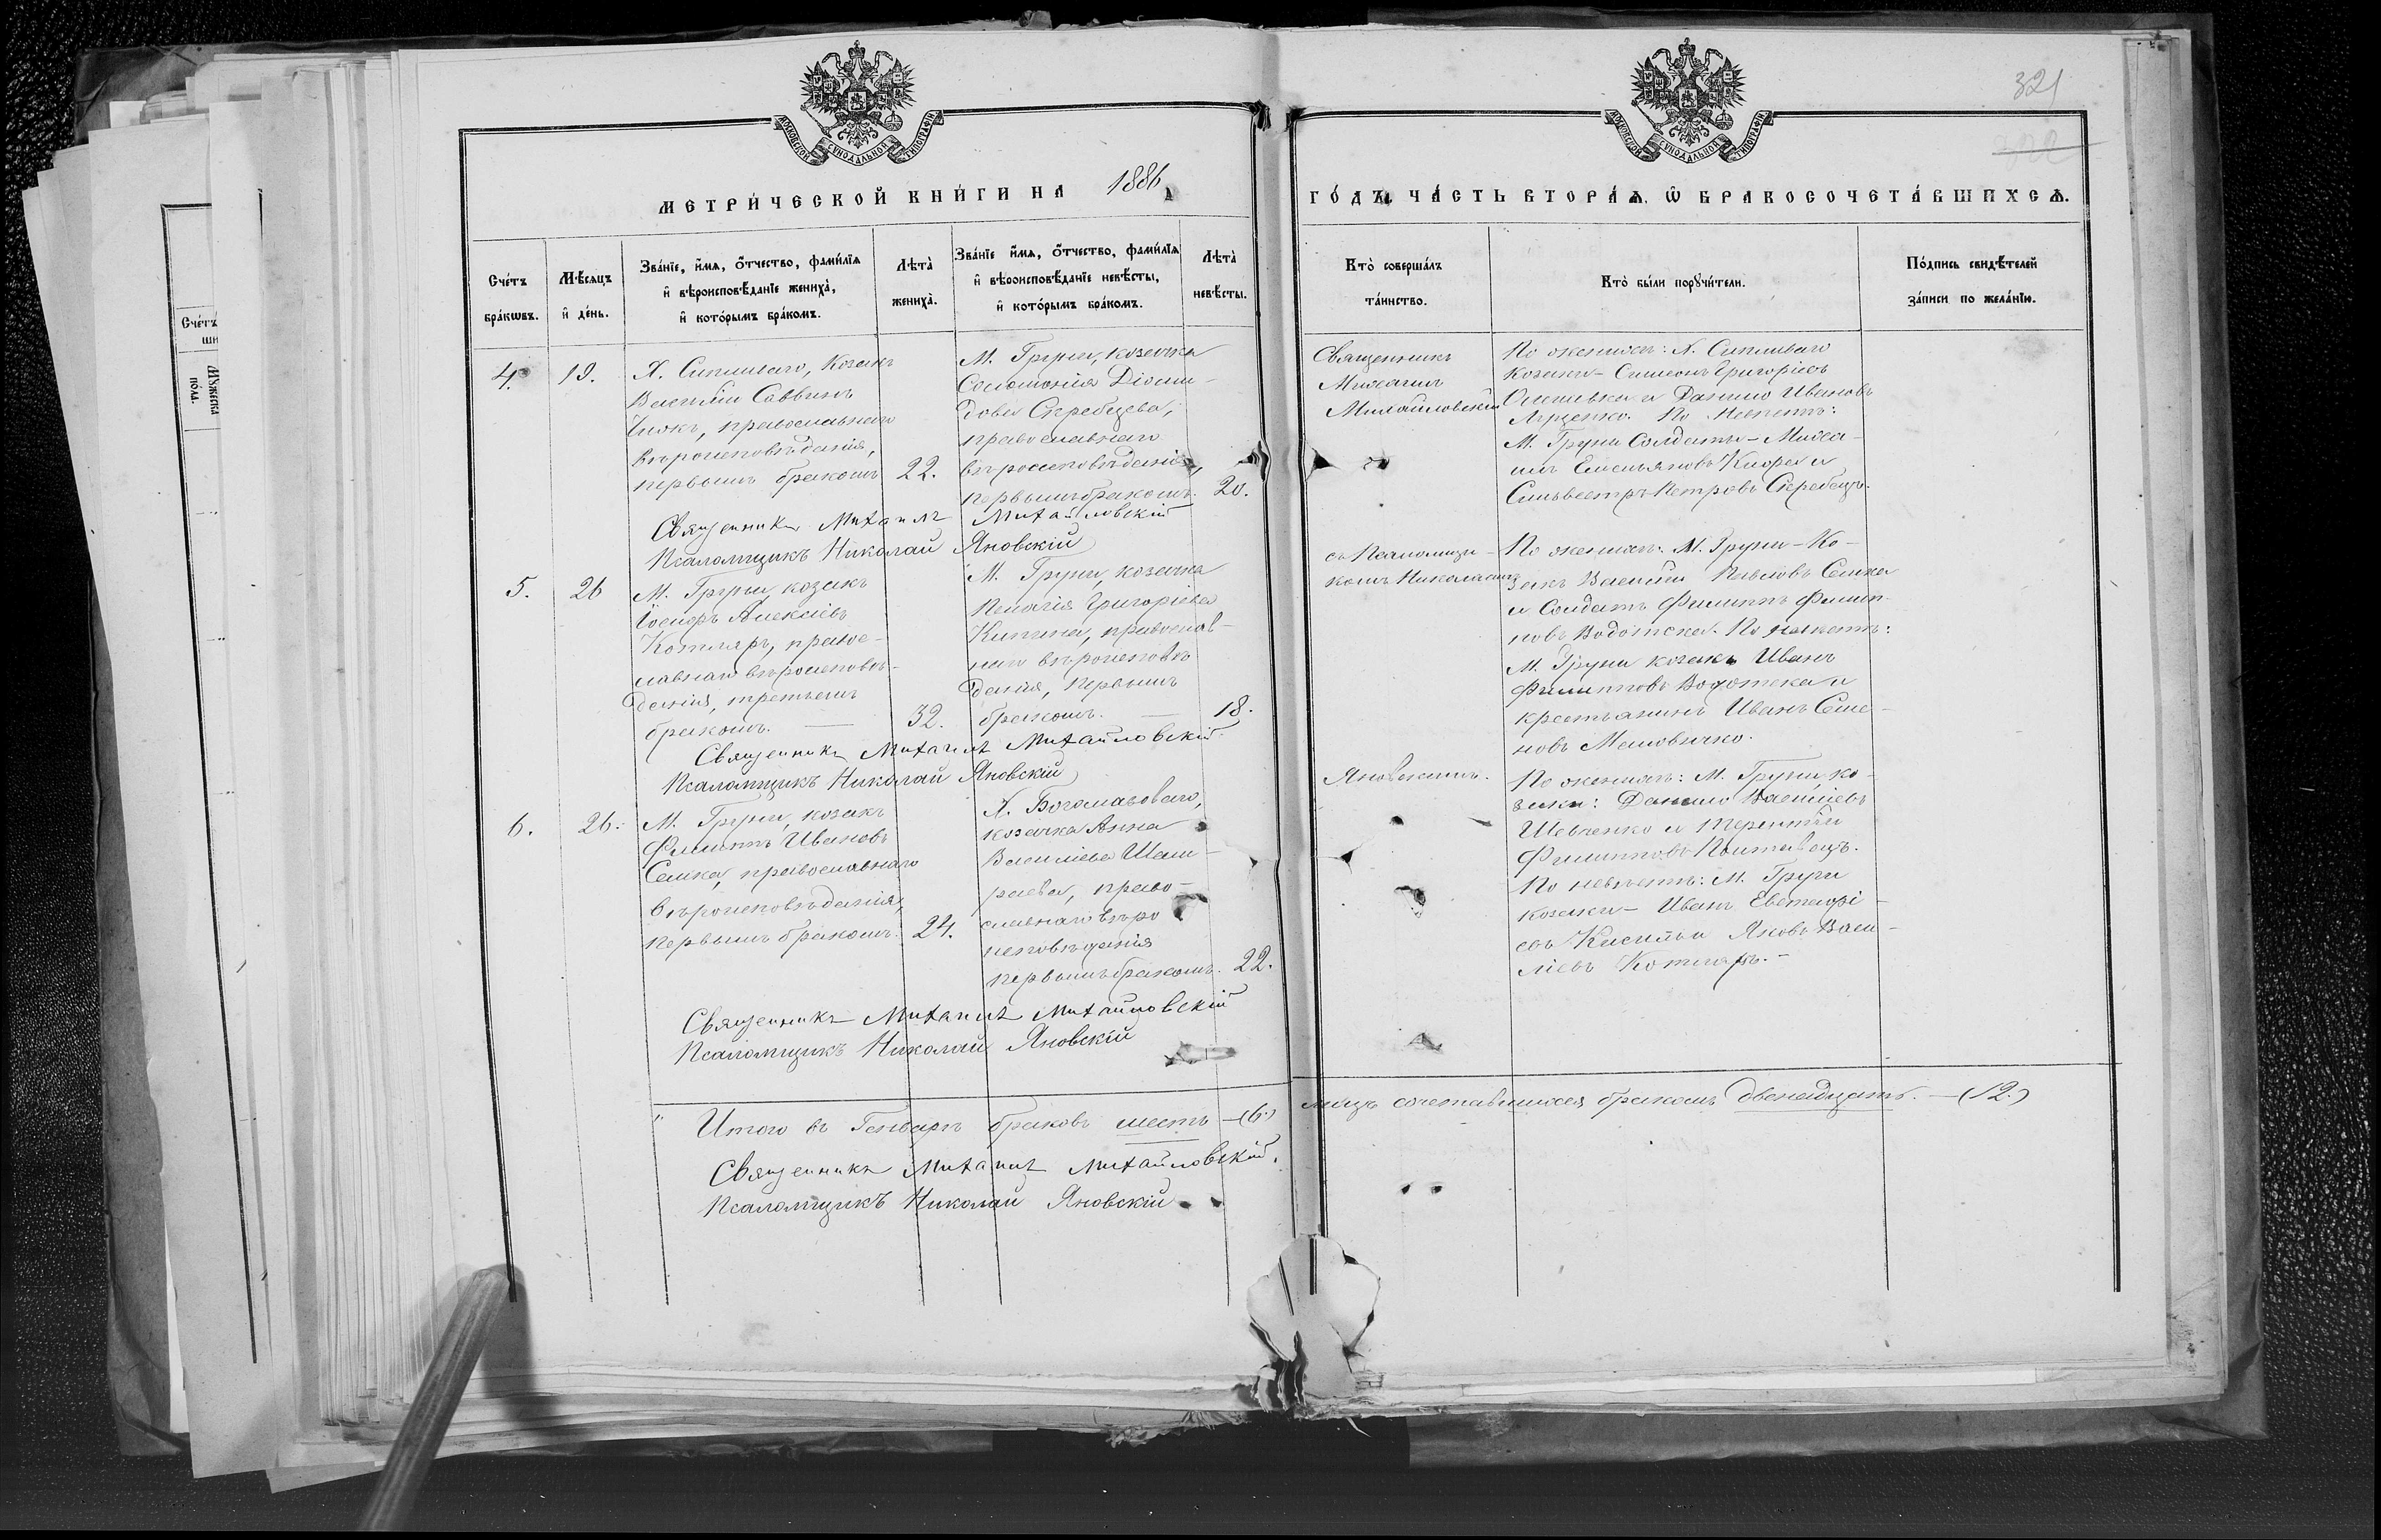 321
МЕТРИ́ЧЕСКОЙ КНИ́ГИ НА 1886
ГО́ДЪ, ЧА́СТЬ ВТОРА́Ѧ, Ѡ҆ БРАКОСОЧЕТА́ВШИХСѦ.
МОСКОВСКОЙ СѴНОДАЛЬНОЙ ТИПОГРАФІИ
МОСКОВСКОЙ СѴНОДАЛЬНОЙ ТИПОГРАФІИ
Сче́тъ бра́кѡвъ.
Мѣ́сяцъ и҆ де́нь.
Зва́нїе, и҆́мѧ, о҆́тчество, фами́лїѧ и҆ вѣроисповѣ́данїе жениха̀, и҆ кото́рымъ бра́комъ.
Лѣта̀ жениха̀.
Зва́нїе и҆́мѧ, о҆́тчество, фами́лїѧ и҆ вѣроисповѣ́данїе невѣ́сты, и҆ кото́рымъ бра́комъ.
Лѣта̀ невѣ́сты.
Кто̀ соверша́лъ та́инство.
Кто̀ бы́ли порꙋчи́тели.
По́дпись свидѣ́телей за́писи по жела́нїю.
Сче́тъ
4.
19.
Х. Сипливаго, Козакъ
Василій Саввинъ
православнаго
вѣроисповѣданія,
первымъ бракомъ
22.
М. Груни, козачка
Соломонія Діоми-
дова Серебецева,
православнаго
вѣроисповѣданія,
первымъ бракомъ.
20.
Священникъ
Михаилъ
Михайловскій
По женихѣ: Х. Сипливаго
козаки - Симеонъ Григоріевъ
и Данило Ивановъ
По невѣстѣ:
М. Груни Солдаты - Миха-
илъ Емельяновъ и
Сильвестръ Петровъ Серебецъ.
Священникъ Михаилъ Михайловскій
Псаломщикъ Николай Яновскій
5.
26
М. Груни, козакъ
Іосифъ Алексіевъ
Котляръ, право-
славнаго вѣроисповѣ-
данія, третьимъ
бракомъ. —
32.
М. Груни, козачка
Пелагія Григоріева
Кипина, православ-
наго вѣроисповѣ
данія, первымъ
бракомъ. —
18.
съ Псаломщи-
комъ Николаемъ
По женихѣ: М. Груни - Ко-
закъ Василій Павловъ Семка
и Солдатъ Филиппъ Филип-
повъ Водотека. По невѣстѣ:
М. Груни козакъ Иванъ
Филипповъ Водотека и
крестьянинъ Иванъ Семе-
новъ Маловичко.
Священникъ Михаилъ Михайловскій.
Псаломщикъ Николай Яновскій
6.
26.
М. Груни, козакъ
Филиппъ Ивановъ
Семка, православнаго
вѣроисповѣданія,
первымъ бракомъ.
24.
Х. Богомазоваго,
козачка Анна
Василіева Шам-
раева, право-
славнаго вѣро
исповѣданія
первымъ бракомъ.
22.
Яновскимъ.
По женихѣ: М. Груни, ко-
заки: Данило Василіевъ
Шевченко и Терентій
Филипповъ Полтавецъ.
По невѣстѣ: М. Груни
козаки - Иванъ Евстафі-
евъ и Яковъ Васи-
ліевъ Котляръ. -
Священникъ Михаилъ Михайловскій
Псаломщикъ Николай Яновскій
Итого въ Генварѣ браковъ шесть - (6.)
лицъ сочетавшихся бракомъ двенадцать. - (12.)
Священникъ Михаилъ Михайловскій.
Псаломщикъ Николай Яновскій